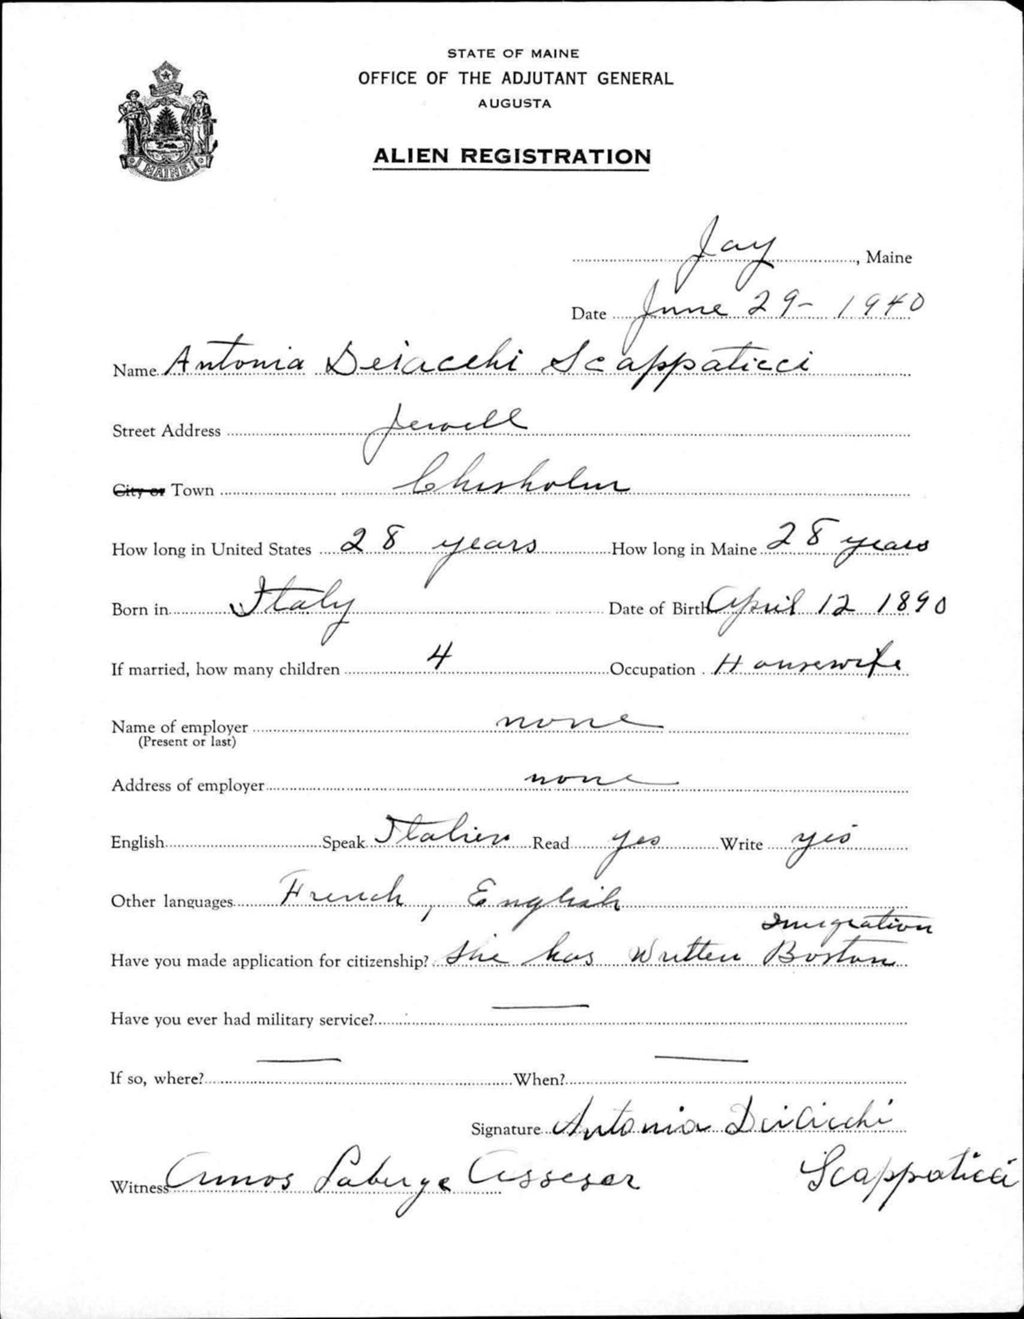 STATE OF MAINE
OFFICE OF THE ADJUTANT GENERAL
AUGUSTA
ALIEN REGISTRATION
MAINE
Jay, Maine
Date June 29- 1940
Name Antonia Deiacchi Scappaticci
Street Address Jewell
City or Town Chisholm
How long in United States 28 years How long in Maine 28 years
Born in Italy Date of Birth April 12 1890
If married, how many children 4 Occupation Housewife
Name of employer none
(Present or last)
Address of employer none
English Speak Italien Read yes Write yes
Other languages French, English
Imigration
Have you made application for citizenship? She has Written Boston
Have you ever had military service?
If so, where? When?
Signature Antonia Deiacchi
Witness Amos Laberge Assesor Scappaticci